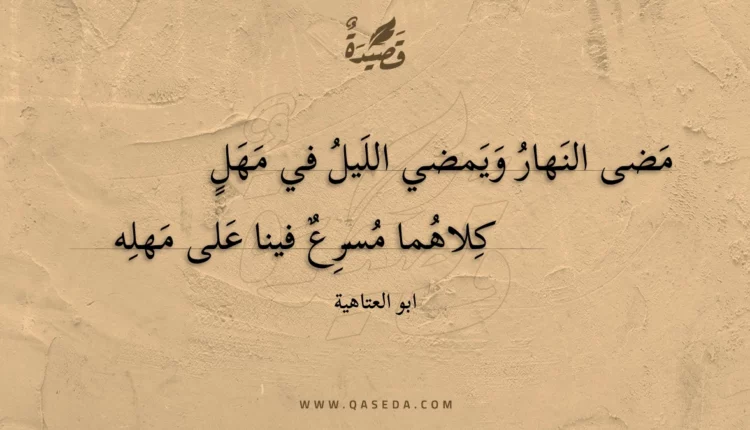 قَصِيْدَةٌ
مَضى النَهارُ وَيَمضي اللَيلُ في مَهَلٍ
كِلاهُما مُسرِعٌ فينا عَلى مَهلِه
ابو العتاهية
WWW.QASEDA.COM